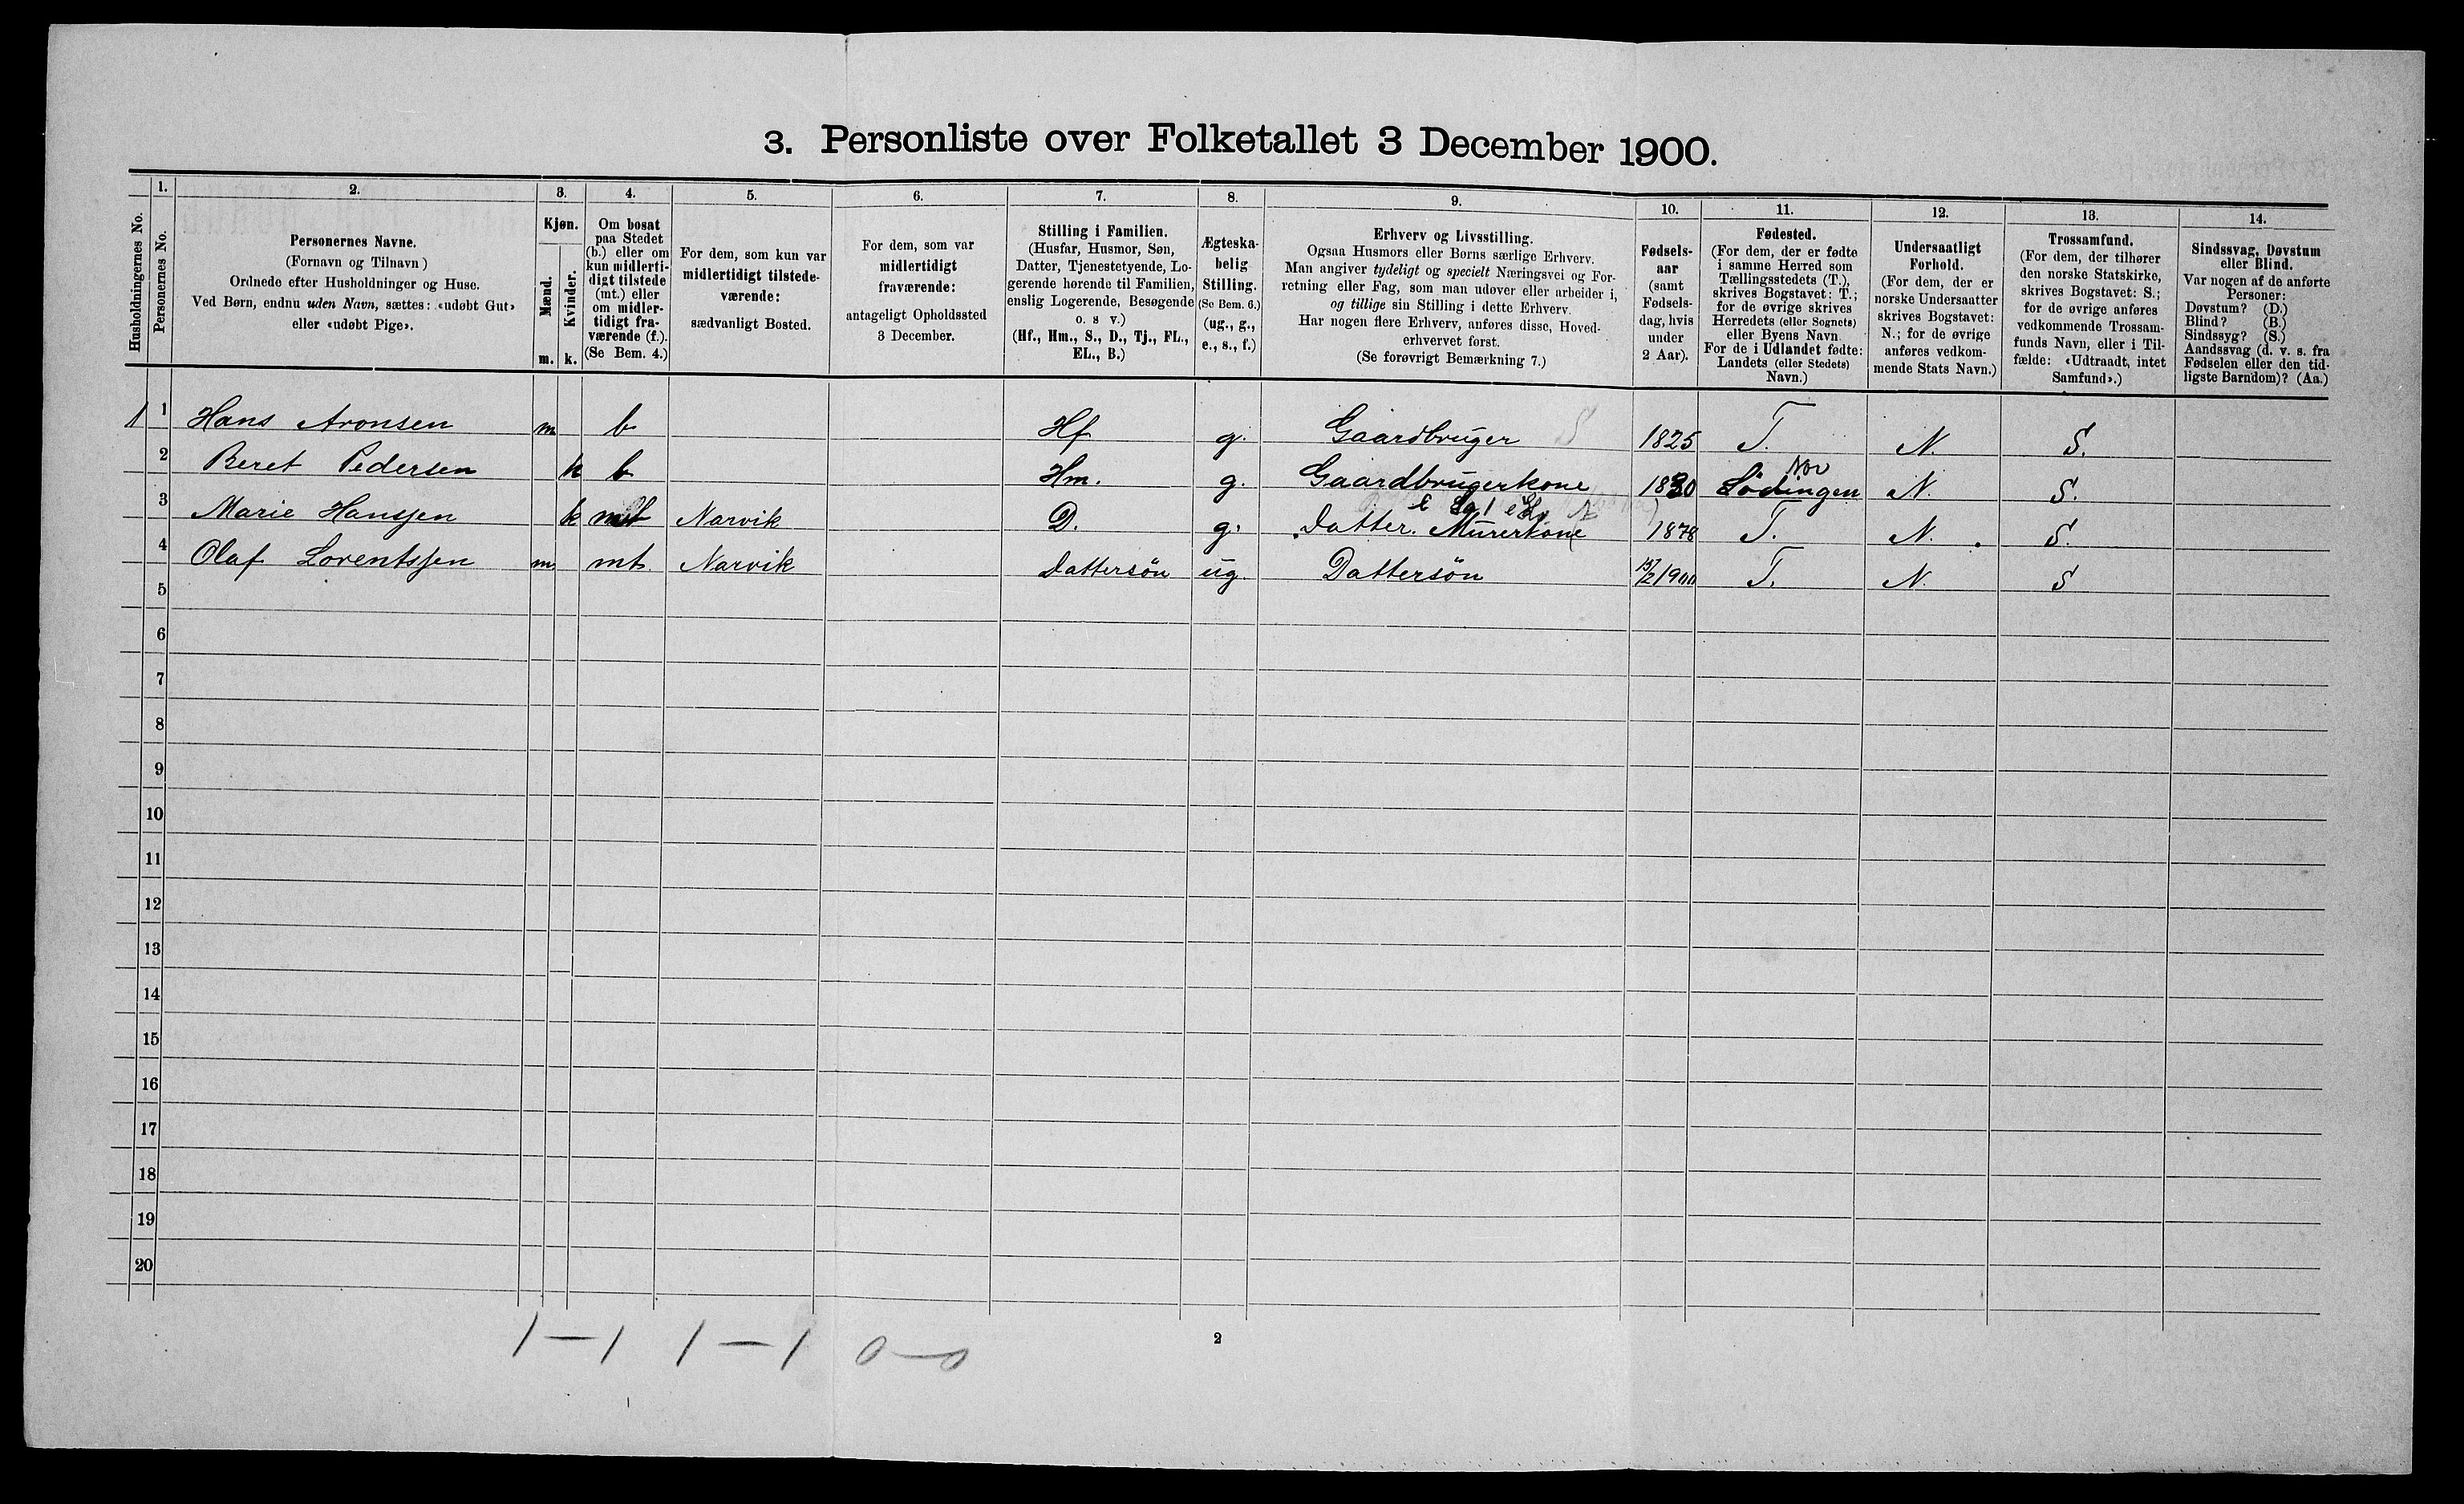 3. Personliste over Folketallet 3 December 1900.
Husholdningernes No.
1.
Personernes No.
2.
Personernes Navne.
(Fornavn og Tilnavn)
Ordnede efter Husholdninger og Huse.
Ved Børn, endnu uden Navn, sættes: «udøbt Gut»
eller «udøbt Pige».
3.
Kjøn.
Mænd.
Kvinder.
m. k.
4.
Om bosat
paa Stedet
(b.) eller om
kun midlerti-
digt tilstede
(mt.) eller
om midler-
tidigt fra-
værende (f.).
(Se Bem. 4.)
5.
For dem, som kun var
midlertidigt tilstede-
værende:
sædvanligt Bosted.
6.
For dem, som var
midlertidigt
fraværende:
antageligt Opholdssted
3 December.
7.
Stilling i Familien.
(Husfar, Husmor, Søn,
Datter, Tjenestetyende, Lo-
gerende hørende til Familien,
enslig Logerende, Besøgende
o. s v.)
(Hf., Hm., S., D., Tj., FL.,
EL., B.)
8.
Ægteska-
belig
Stilling.
(Se Bem. 6.)
(ug., g.,
e., s., f.)
9.
Erhverv og Livsstilling.
Ogsaa Husmors eller Børns særlige Erhverv.
Man angiver tydeligt og specielt Næringsvei og For-
retning eller Fag, som man udøver eller arbeider i,
og tillige sin Stilling i dette Erhverv.
Har nogen flere Erhverv, anføres disse, Hoved-
erhvervet først.
(Se forøvrigt Bemærkning 7.)
10.
Fødsels-
aar
(samt
Fødsels-
dag, hvis
under
2 Aar).
11.
Fødested.
(For dem, der er fødte
i samme Herred som
Tællingsstedets (T.),
skrives Bogstavet: T.;
for de øvrige skrives
Herredets (eller Sognets)
eller Byens Navn
For de i Udlandet fødte:
Landets (eller Stedets)
Navn.)
12.
Undersaatligt
Forhold.
(For dem, der er
norske Undersaatter
skrives Bogstavet:
N.; for de øvrige
anføres vedkom-
mende Stats Navn.)
13.
Trossamfund.
(For dem, der tilhører
den norske Statskirke,
skrives Bogstavet: S.;
for de øvrige anføres
vedkommende Trossam-
funds Navn, eller i Til-
fælde: «Udtraadt, intet
Samfund».)
14.
Sindssvag, Døvstum
eller Blind.
Var nogen af de anførte
Personer:
Døvstum? (D.)
Blind? (B.)
Sindssyg? (S.)
Aandssvag (d. v. s. fra
Fødselen eller den tid-
ligste Barndom)? (Aa.)
1 1 Hans Aronsen m b Hf g. Gaardbruger S 1825 T. N. S.
2 Beret Pedersen k b Hm. g. Gaardbrugerkone 1830 Lödingen Nor N. S.
3 Marie Hanssen k mt Narvik D. g. Datter. Murerkone 1878 T. N. S.
4 Olaf Lorentssen m mt Narvik Dattersön ug. Dattersön 15/2 1900 T. N. S
5
6
7
8
9
10
11
12
13
14
15
16
17
18
19
20
1–1 1–1 0–0
2